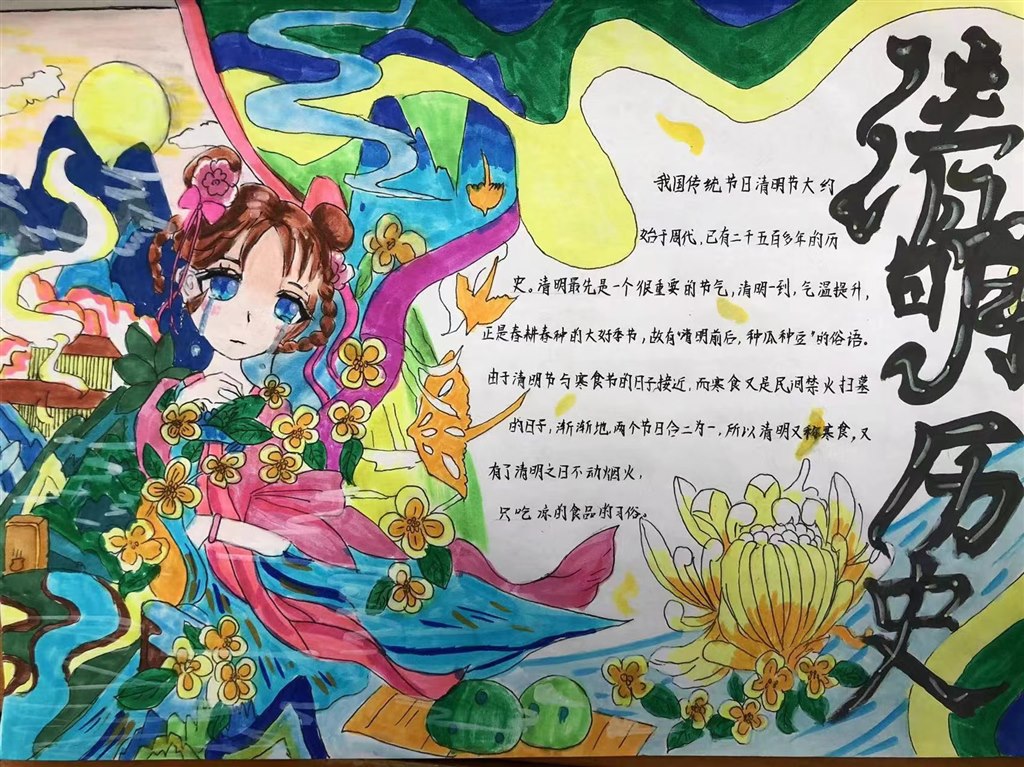 清明历史
我国传统节日清明节大约
始于周代，已有二千五百多年的历
史。清明最先是一个很重要的节气，清明一到，气温提升，
正是春耕春种的大好季节，故有“清明前后，种瓜种豆”的俗语。
由于清明节与寒食节的日子接近，而寒食又是民间禁火扫墓
的日子，渐渐地，两个节日合二为一，所以清明又称寒食，又
有了清明之日不动烟火，
只吃凉的食品的习俗。